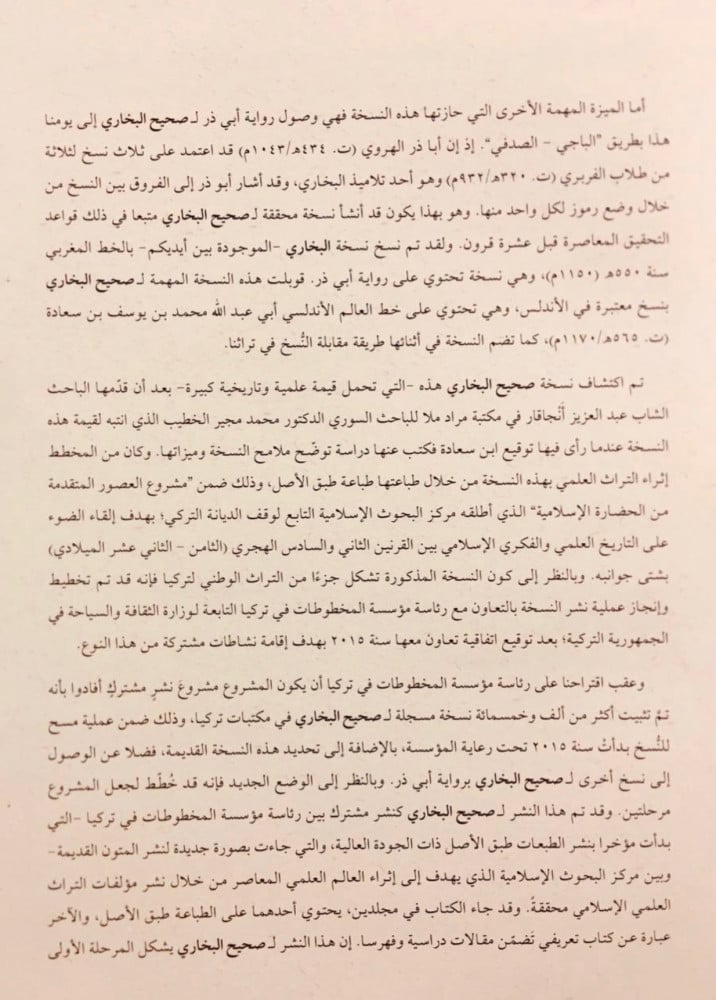 أما الميزة المهمة الأخرى التي حازتها هذه النسخة فهي وصول رواية أبي ذر لـ صحيح البخاري إلى يومنا
هذا بطريق "الباجي – الصدفي". إذ إن أبا ذر الهروي (ت. ٤٣٤هـ/١٠٤٣م) قد اعتمد على ثلاث نسخ لثلاثة
من طلاب الفربري (ت. ٣٢٠هـ/٩٣٢م) وهو أحد تلاميذ البخاري، وقد أشار أبو ذر إلى الفروق بين النسخ من
خلال وضع رموز لكل واحد منها. وهو بهذا يكون قد أنشأ نسخة محققة لـ صحيح البخاري متبعا في ذلك قواعد
التحقيق المعاصرة قبل عشرة قرون. ولقد تم نسخ نسخة البخاري –الموجودة بين أيديكم– بالخط المغربي
سنة ٥٥٠هـ (١١٥٠م)، وهي نسخة تحتوي على رواية أبي ذر. قوبلت هذه النسخة المهمة لـ صحيح البخاري
بنسخ معتبرة في الأندلس، وهي تحتوي على خط العالم الأندلسي أبي عبد الله محمد بن يوسف بن سعادة
(ت. ٥٦٥هـ/١١٧٠م)، كما تضم النسخة في أثنائها طريقة مقابلة النُّسخ في تراثنا.
تم اكتشاف نسخة صحيح البخاري هذه –التي تحمل قيمة علمية وتاريخية كبيرة– بعد أن قدّمها الباحث
الشاب عبد العزيز أَنجاقار في مكتبة مراد ملا للباحث السوري الدكتور محمد مجير الخطيب الذي انتبه لقيمة هذه
النسخة عندما رأى فيها توقيع ابن سعادة فكتب عنها دراسة توضّح ملامح النسخة وميزاتها. وكان من المخطط
إثراء التراث العلمي بهذه النسخة من خلال طباعتها طباعة طبق الأصل، وذلك ضمن "مشروع العصور المتقدمة
من الحضارة الإسلامية" الذي أطلقه مركز البحوث الإسلامية التابع لوقف الديانة التركي؛ بهدف إلقاء الضوء
على التاريخ العلمي والفكري الإسلامي بين القرنين الثاني والسادس الهجري (الثامن – الثاني عشر الميلادي)
بشتى جوانبه. وبالنظر إلى كون النسخة المذكورة تشكل جزءًا من التراث الوطني لتركيا فإنه قد تم تخطيط
وإنجاز عملية نشر النسخة بالتعاون مع رئاسة مؤسسة المخطوطات في تركيا التابعة لوزارة الثقافة والسياحة في
الجمهورية التركية؛ بعد توقيع اتفاقية تعاون معها سنة ٢٠١٥ بهدف إقامة نشاطات مشتركة من هذا النوع.
وعقب اقتراحنا على رئاسة مؤسسة المخطوطات في تركيا أن يكون المشروع مشروعَ نشرٍ مشتركٍ أفادوا بأنه
تمَّ تثبيت أكثر من ألف وخمسمائة نسخة مسجلة لـ صحيح البخاري في مكتبات تركيا، وذلك ضمن عملية مسح
للنُّسخ بدأتْ سنة ٢٠١٥ تحت رعاية المؤسسة، بالإضافة إلى تحديد هذه النسخة القديمة، فضلا عن الوصول
إلى نسخ أخرى لـ صحيح البخاري برواية أبي ذر. وبالنظر إلى الوضع الجديد فإنه قد خُطّط لجعل المشروع
مرحلتين. وقد تم هذا النشر لـ صحيح البخاري كنشر مشترك بين رئاسة مؤسسة المخطوطات في تركيا –التي
بدأت مؤخرا بنشر الطبعات طبق الأصل ذات الجودة العالية، والتي جاءت بصورة جديدة لنشر المتون القديمة–
وبين مركز البحوث الإسلامية الذي يهدف إلى إثراء العالم العلمي المعاصر من خلال نشر مؤلفات التراث
العلمي الإسلامي محققةً. وقد جاء الكتاب في مجلدين، يحتوي أحدهما على الطباعة طبق الأصل، والآخر
عبارة عن كتاب تعريفي تَضمّن مقالات دراسية وفهرسا. إن هذا النشر لـ صحيح البخاري يشكل المرحلة الأولى